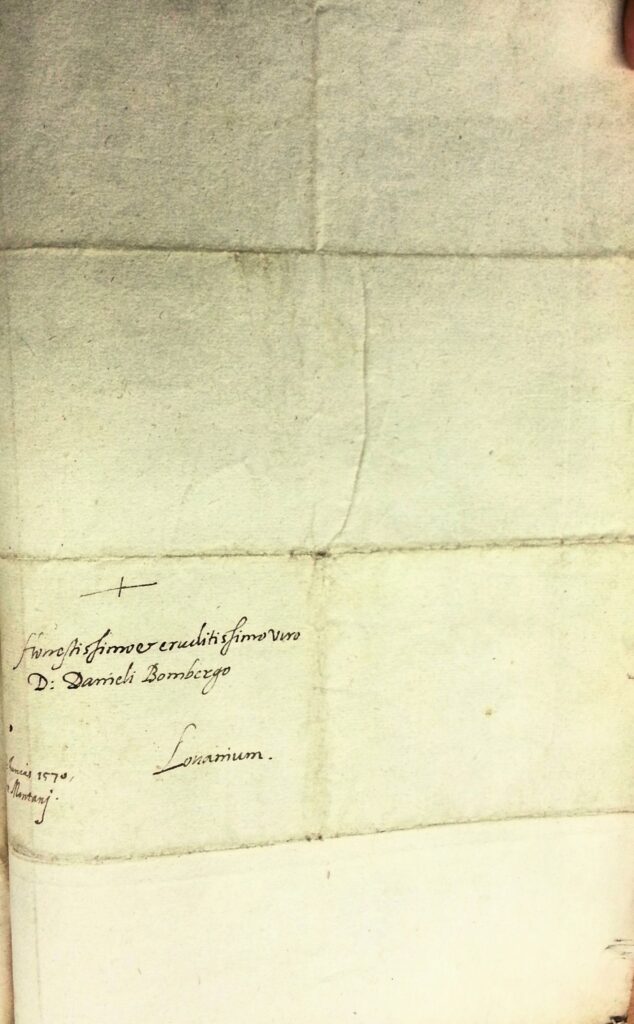 Honestissimo et eruditissimo viro
D: Danieli Bombergo
Louanium.
1570.
Montanj.